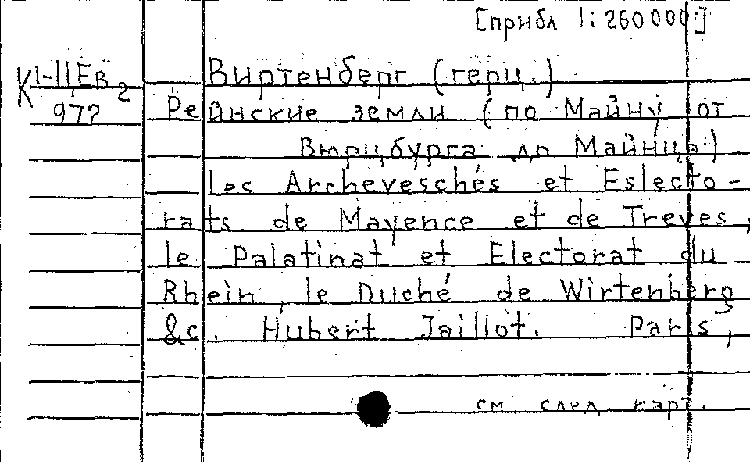 [прибл 1:260 000]
К 1-II Ев 2
972
Виртенберг (герц.)
Рейнские земли (по Майну от
Вюрцбурга до Майнца)
Les Archeveschés et Eslecto-
rats de Mayence et de Treves,
le Palatinat et Electorat du
Rhein, le Duché de Wirtenberg
&c. Hubert Jaillot. Paris,
см след карт.